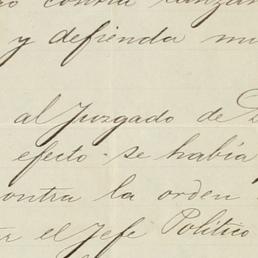 contra lanzan
y defienda mi
al Juzgado de
efecto se había
contra la orden
el Jefe Político